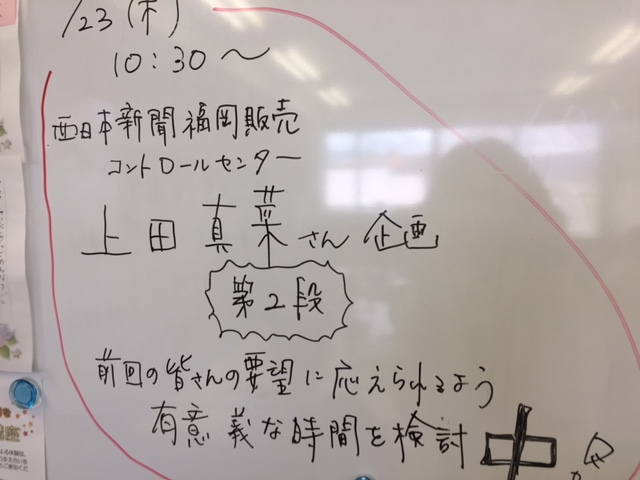 /23(木)
10:30〜
西日本新聞福岡販売
コントロールセンター
上田真菜さん企画
第2段
前回の皆さんの要望に応えられるよう
有意義な時間を検討中